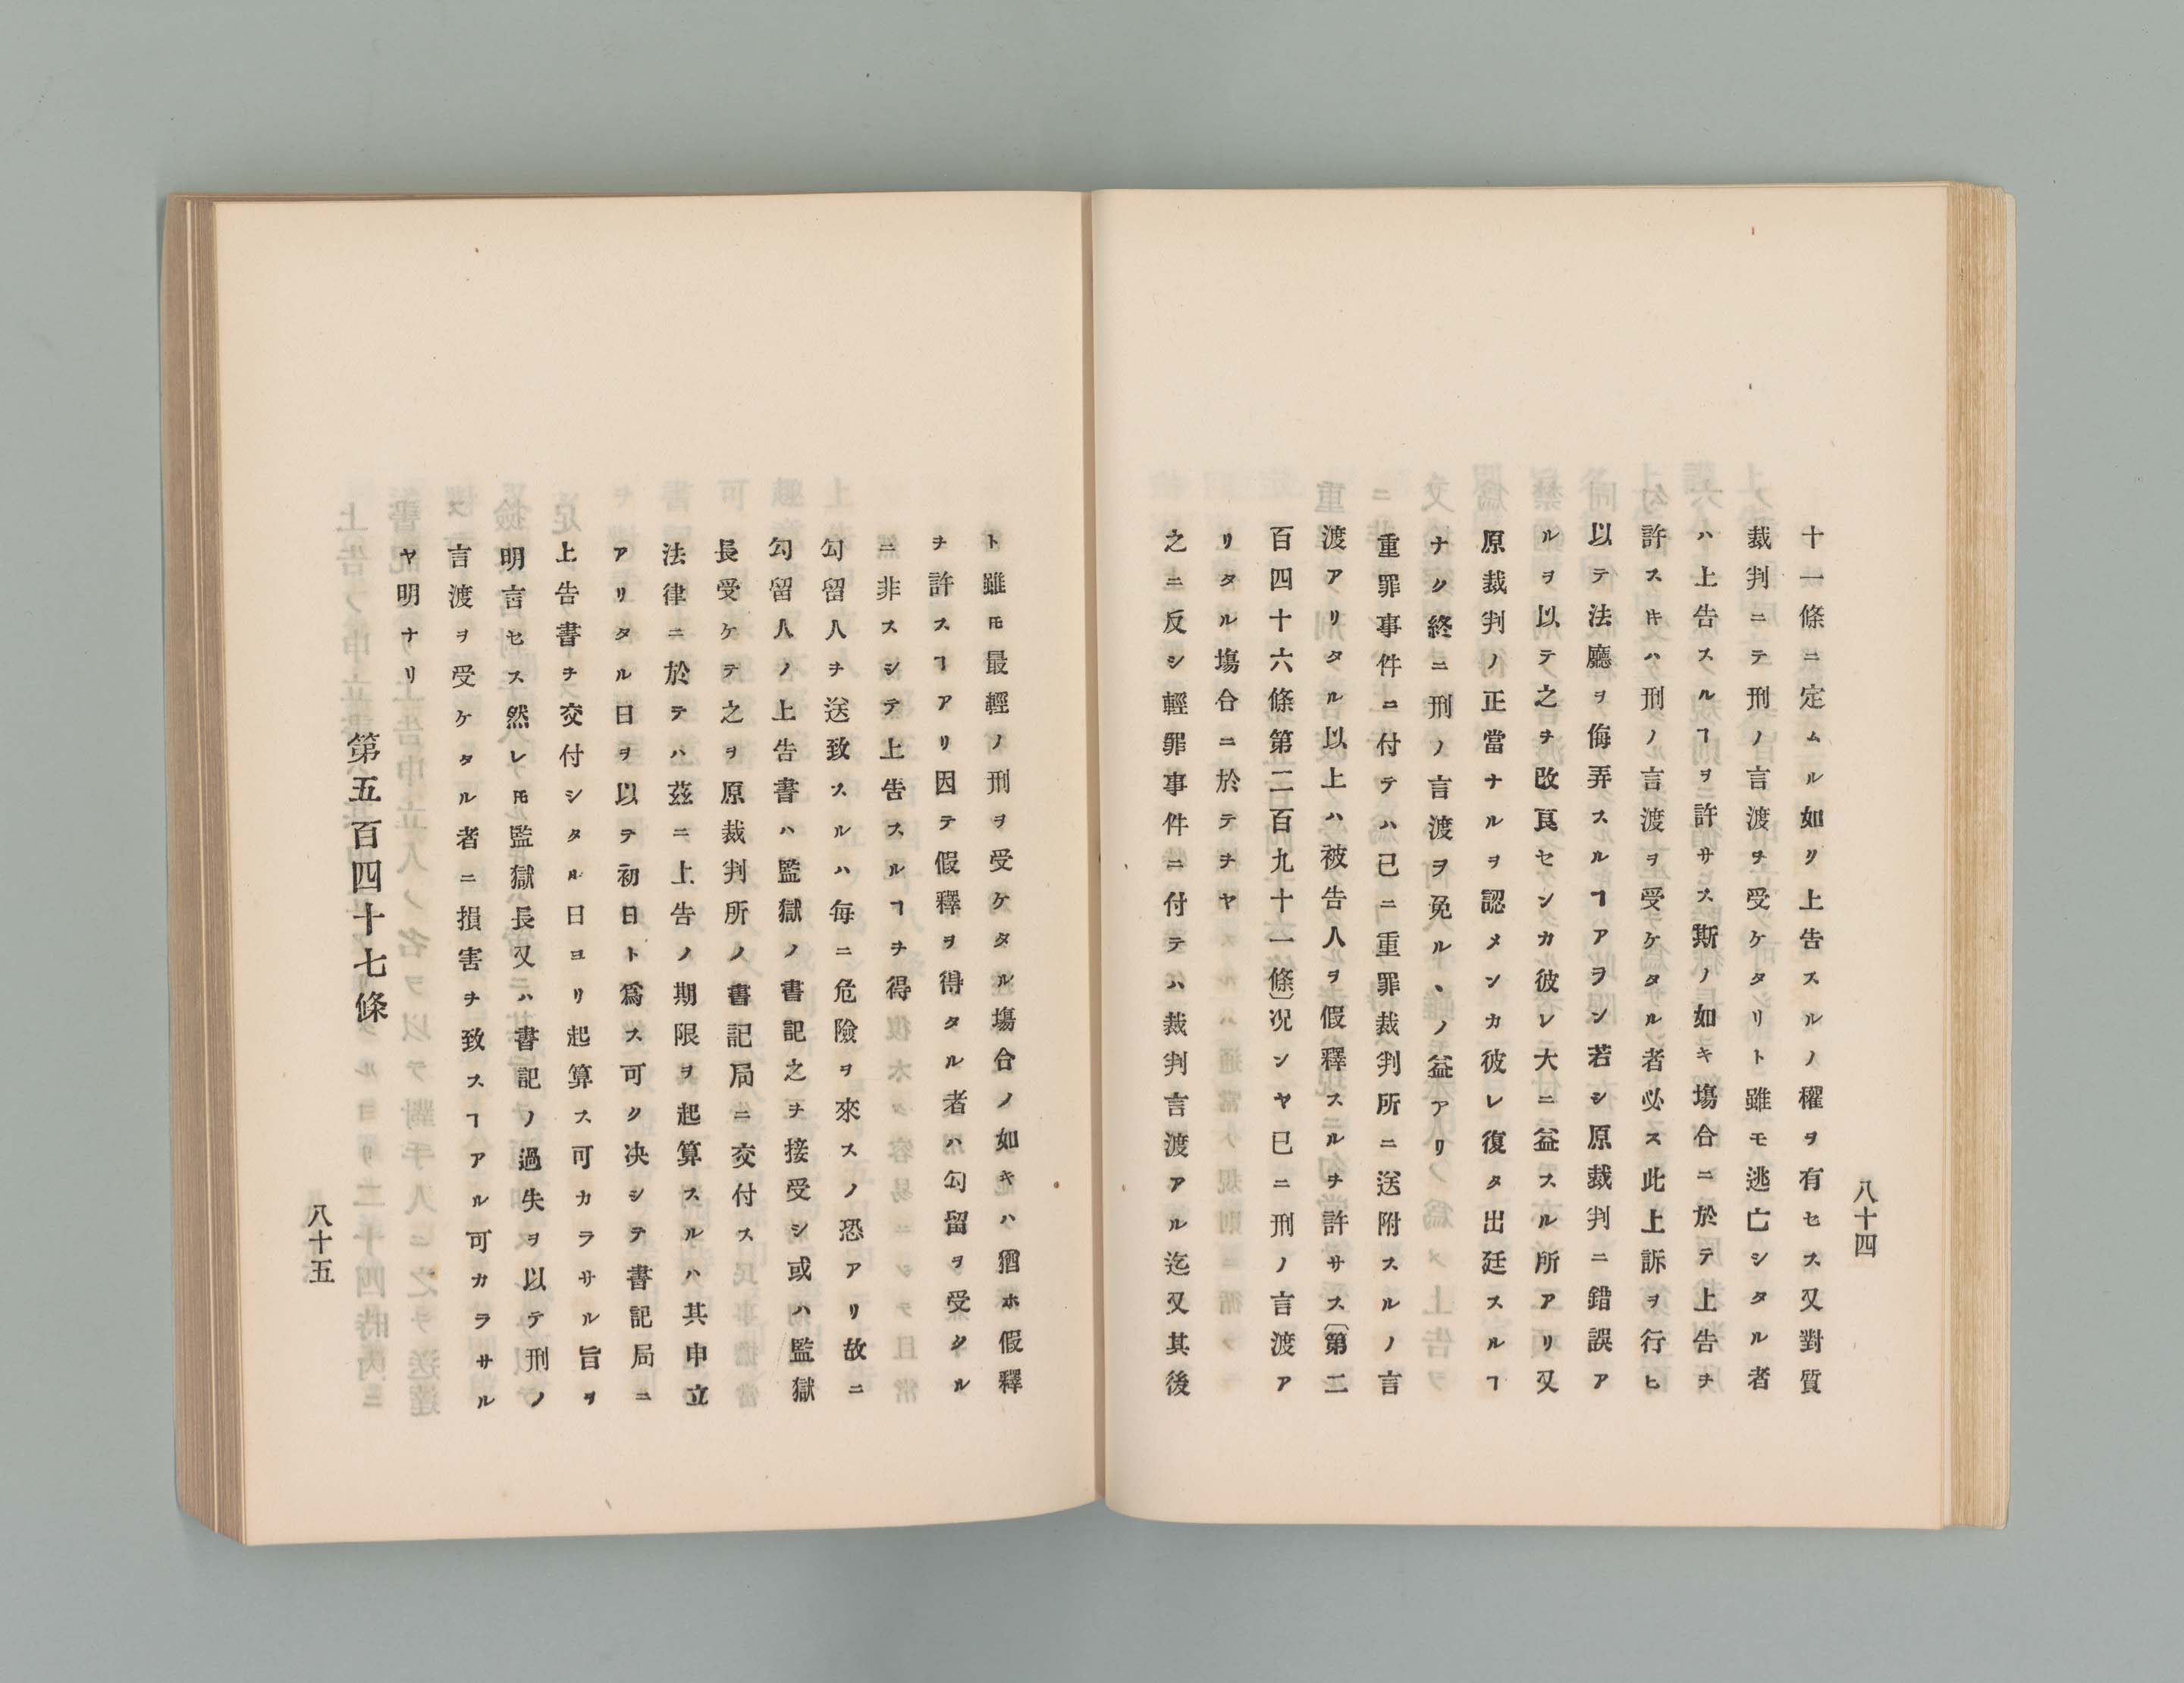 八十四
十一條ニ定ムル如リ上告スルノ權ヲ有セス又對質
裁判ニテ刑ノ言渡ヲ受ケタリト雖モ逃亡シタル者
ハ上告スルヿヲ許サス斯ノ如キ塲合ニ於テ上告ヲ
許スキハ刑ノ言渡ヲ受ケタル者必ス此上訴ヲ行ヒ
以テ法廳ヲ侮弄スルヿアラン若シ原裁判ニ錯誤ア
ルヲ以テ之ヲ改良センカ彼レ大ニ益スル所アリ又
原裁判ノ正當ナルヲ認メンカ彼レ復タ出廷スルヿ
ナク終ニ刑ノ言渡ヲ免ルヽノ益アリ
重罪事件ニ付テハ已ニ重罪裁判所ニ送附スルノ言
渡アリタル以上ハ被告人ヲ假釋スルヲ許サス〔第二
百四十六條第二百九十一條〕况ンヤ已ニ刑ノ言渡ア
リタル塲合ニ於テヲヤ
之ニ反シ輕罪事件ニ付テハ裁判言渡アル迄又其後
ト雖𪜈最輕ノ刑ヲ受ケタル塲合ノ如キハ猶ホ假釋
ヲ許スヿアリ因テ假釋ヲ得タル者ハ勾留ヲ受クル
ニ非スシテ上告スルヿヲ得
勾留人ヲ送致スルハ每ニ危險ヲ來スノ恐アリ故ニ
勾留人ノ上告書ハ監獄ノ書記之ヲ接受シ或ハ監獄
長受ケテ之ヲ原裁判所ノ書記局ニ交付ス
法律ニ於テハ茲ニ上告ノ期限ヲ起算スルハ其申立
アリタル日ヲ以テ初日ト爲ス可ク决シテ書記局ニ
上告書ヲ交付シタル日ヨリ起算ス可カラサル旨ヲ
明言セス然レ𪜈監獄長又ハ書記ノ過失ヲ以テ刑ノ
言渡ヲ受ケタル者ニ損害ヲ致スヿアル可カラサル
ヤ明ナリ
第五百四十七條
八十五